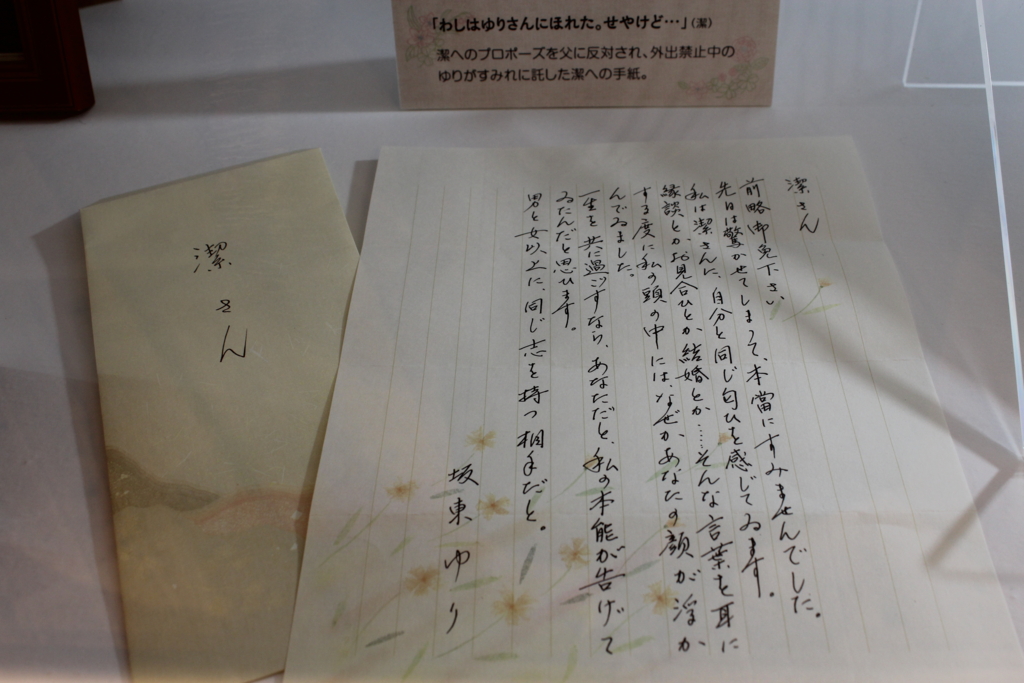 「わしはゆりさんにほれた。せやけど…」(潔)
潔へのプロポーズを父に反対され、外出禁止中の
ゆりがすみれに託した潔への手紙。
潔さん
潔さん
前略御免下さい
先日は驚かせてしまって、本當にすみませんでした。
私は潔さんに、自分と同じ匂ひを感じてゐます。
縁談とかお見合ひとか結婚とか……そんな言葉を耳に
する度に私の頭の中には、なぜかあなたの顔が浮か
んでゐました。
一生を共に過ごすなら、あなただと、私の本能が告げて
ゐたんだと思ひます。
男と女以上に、同じ志を持つ相手だと。
坂東ゆり